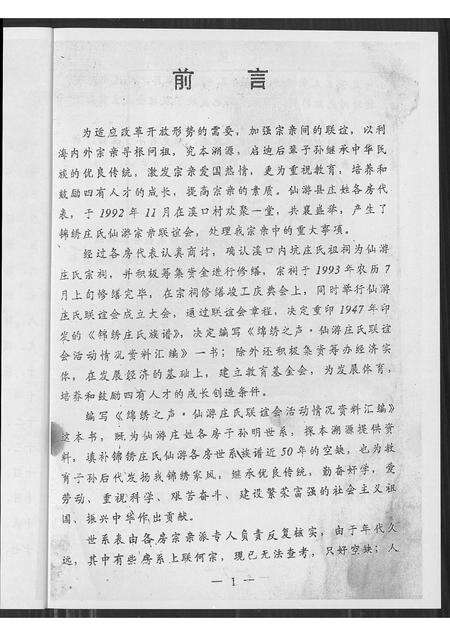 前言
为适应改革开放形势的需要，加强宗亲间的联谊，以利
海内外宗亲寻根问祖，究本溯源，启迪后辈子孙继承中华民
族的优良传统，激发宗亲爱国热情，更为重视教育，培养和
鼓励四有人才的成长，提高宗亲的素质。仙游县庄姓各房代
表，于1992年11月在溪口村欢聚一堂，共襄盛举，产生了
锦绣庄氏仙游宗亲联谊会，处理我宗亲中的重大事项。
经过各房代表认真商讨，确认溪口内坑庄氏祖祠为仙游
庄氏宗祠，并积极筹集资金进行修缮，宗祠于1993年农历7
月上旬修缮完毕，在宗祠修缮竣工庆典会上，同时举行仙游
庄氏联谊会成立大会，通过联谊会章程，决定重印1947年印
发的《锦绣庄氏族谱》，决定编写《锦绣之声·仙游庄氏联谊
会活动情况资料汇编》一书；除外还积极集资筹办经济实
体，在发展经济的基础上，建立教育基金会，为发展体育，
培养和鼓励四有人才的成长创造条件。
编写《锦绣之声·仙游庄氏联谊会活动情况资料汇编》
这本书，既为仙游庄姓各房子孙明世系，探本溯源提供资
料，填补锦绣庄氏仙游各房世系族谱近50年的空缺，也为教
育子孙后代发扬我锦绣家风，继承优良传统，勤奋好学，爱
劳动，重视科学、艰苦奋斗、建设繁荣富强的社会主义祖
国、振兴中华作出贡献。
世系表由各房宗亲派专人负责反复核实，由于年代久
远，其中有些房系上联何宗，现已无法查考，只好空缺；人
— 1 —